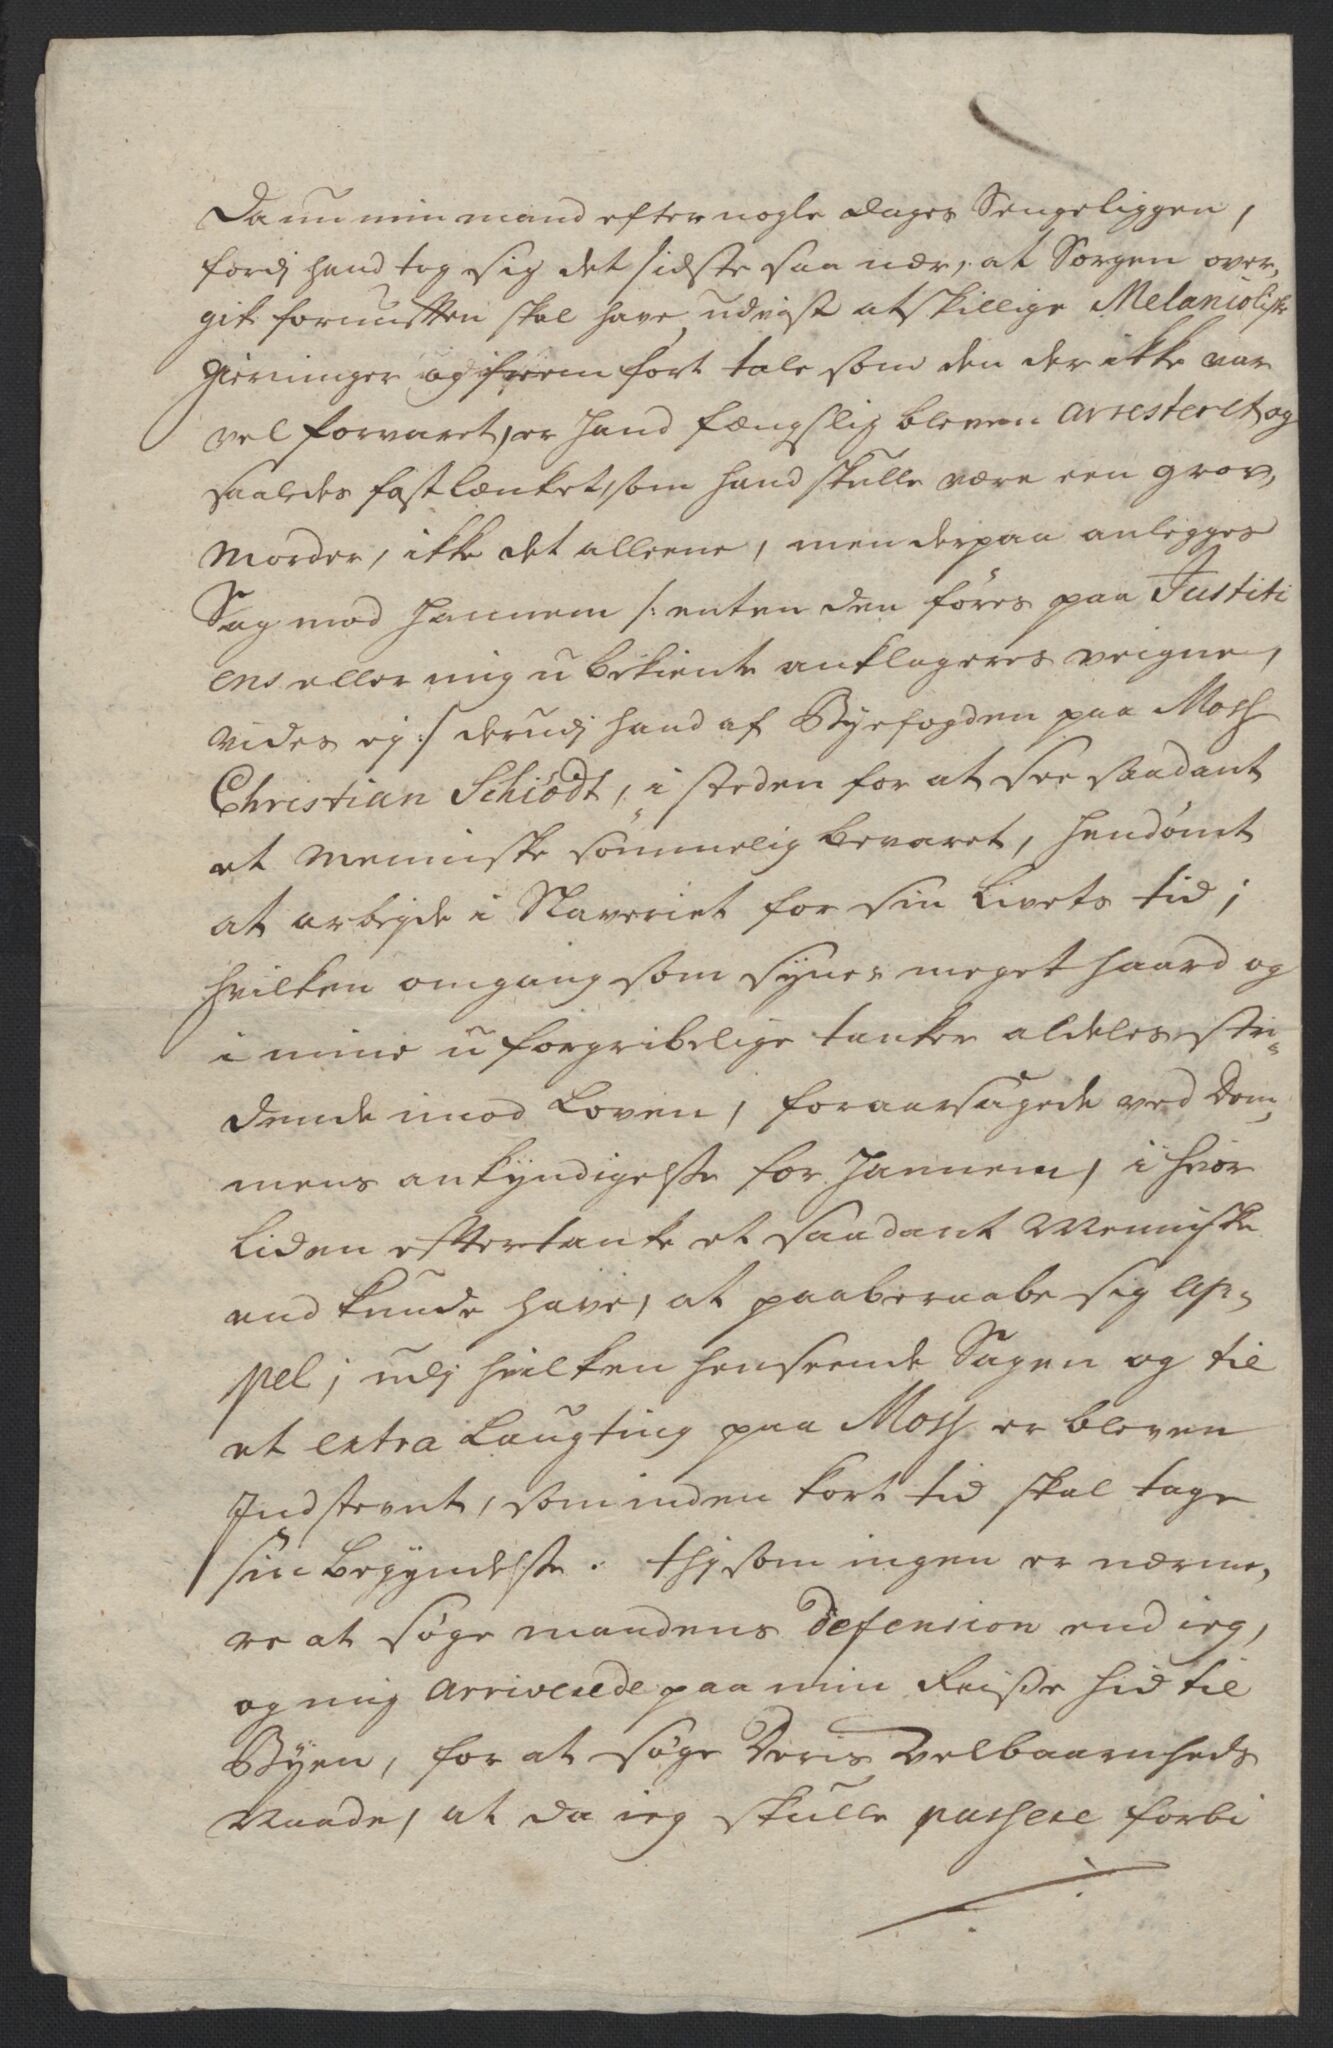 Da nu min mand efter nogle dages Sengeliggen,
fordj hand tog sig det sidste saa nær, at Sorgen over,
gik fornutten skal have udvist atskillige Melancolishe
gierninger og fort tale som den der ikke var
vel forvaret, er hand fængslig bleven arresteret og
saaledes fastlænket, som hand skulle være een grov,
Morder, ikke det alleene, men derpaa anlegges
Sag mod hannem /: enten den föres paa Justiti
ens eller mig u bekiente anklageres veigne,
vides ej :/ derudj hand af Byefogden paa Moss
Christian Schiödt, i steden for at see saadant
et Menniske sömmelig bevaret, hendömt
at arbejde i Slaveriet for sin Livets tid;
hvilken omgang som synes meget haard og
i mine u forgribelige tanker aldeles stri=
dende imod Loven, foraarsagede ved Dom,
mens ankyndigelse for hannem, i hvor
liden eftertanke et saadant Menniske
end kunde have, at paaberaabe sig ap=
pel; udj hvilken henseende Sagen og til
et extra Laugting paa Moss er bleven
Indstevnt, som inden kort tid skal tage
sin begyndelse. thj som ingen er nærme,
re at söge mandens defension end ieg,
og mig arriverede paa min Reise hid til
Byen, for at söge Deris Velbaarnheds
Naade, at da ieg skulle passere forbi